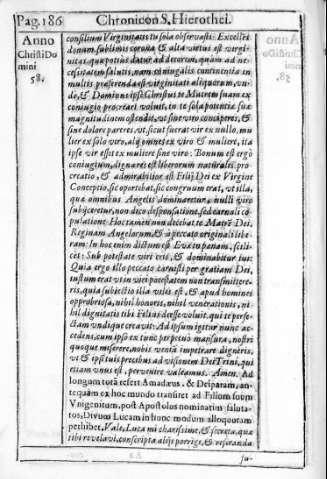 Pag. 186 Chronicon S. Hierothei.
Anno
Christi Do
mini
58.
consilium Virginitatis tu sola observasti: Excellēs
donum sublimis corona, & alta virtus est virgi-
nitas, quæ potius datur ad decorem, quàm ad ne-
cessitatem salutis, nam coniugalis continentia in
multis præferenda est virginitati aliquorum, vn-
de, & Dominus ipse Christus te Matrem suam ex
coniugio procreari voluit, in te sola potentiæ suæ
magnitudinem ostendit, vt sine viro conciperes, &
sine dolore pareres, vt sicut fuerat vir ex nullo, mu
lier ex solo viro, alij omnes ex viro & muliere, ita
ipse vir esset ex muliere sine viro. Bonum est ergò
coniugium, dignare est liberorum naturalis pro-
creatio, & admirabilior est Filij Dei ex Virgine
Conceptio, sic oportebat, sic congruum erat, vt illa,
quæ omnibus Angelis dominaretur, nulli viro
subijceretur, non dico dispensatione, sed carnali co
pulatione. Hoc enim non decebat te Matrē Dei,
Reginam Angelorum, & à peccato originali libe-
ram: In hoc enim dictum est Euæ in pœnam, scili-
cet: Sub potestate viri eris, & dominabitur tui:
Quia ergo illo peccato caruisti per gratiam Dei,
iustum erat vt in viri potestatem non transmittere-
ris, quia subiectio illa vilis est, & apud homines
opprobriosa, nihil honoris, nihil venerationis, ni-
hil dignitatis tibi Filius deesse voluit, qui te perfe-
ctam vndique creavit: Ad ipsum igitur nunc ac-
cedens, cum ipso ex tunc perpetuò mansura, nostri
quoque miserere, nobis veniā impetrare digneris,
vt & ipsi tuis precibus ad visionem Dei Trini, qui
etiam vnus est, pervenire valeamus. Amen. Ad
longam totā refert Amadæus. & Deiparam, an-
tequàm ex hoc mundo transiret ad Filium suum
Vnigenitum, post Apostolos nominatim saluta-
tos, Divum Lucam in hunc modum alloquutam
perhibet, Vale, Luca mi charissime, & secreta, quæ
tibi revelavi, conscripta alijs porrige, & referanda